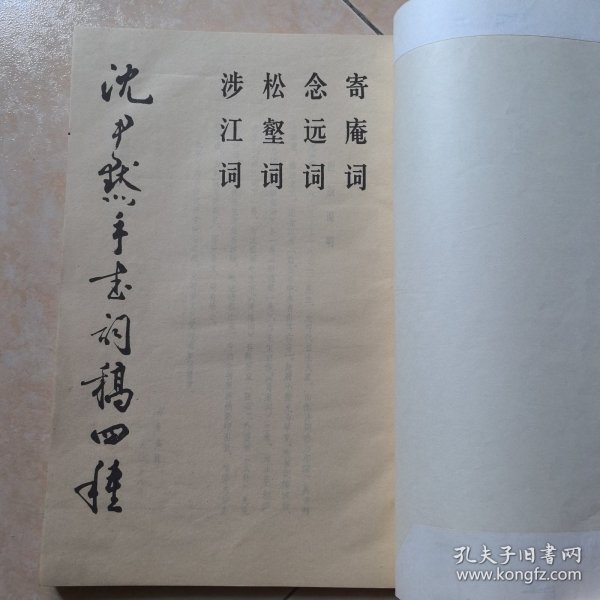 寄庵词
念远词
松壑词
涉江词
沈尹默手书词稿四種
孔夫子旧书网
www.kongfz.com